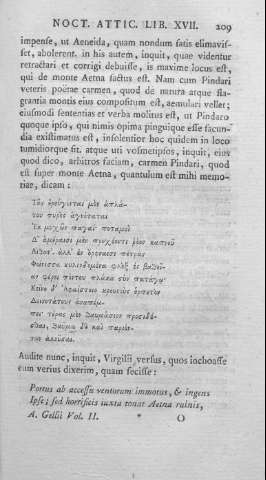 NOCT. ATTIC. LIB. XVII. 209
impense, ut Aeneida, quam nondum satis elimavis-
set, abolerent. in his autem, inquit, quae videntur
retractari et corrigi debuisse, is maxime locus est,
qui de monte Aetna factus est. Nam cum Pindari
veteris poëtae carmen, quod de natura atque fla-
grantia montis eius compositum est, aemulari vellet;
eiusmodi sententias et verba molitus est, ut Pindaro
quoque ipso, qui nimis opima pinguique esse facun-
dia existimatus est, insolentior hoc quidem in loco
tumidiorque sit. atque uti vosmetipsos, inquit, eius
quod dico, arbitros faciam, carmen Pindari, quod
est super monte Aetna, quantulum est mihi memo-
riae, dicam:
Τᾶς ἐρεύγονται μὲν ἀπλά-
του πυρὸς ἁγνόταται
Ἐκ μυχῶν παγαί· ποταμοὶ
Δ' ἁμέραισι μὲν προχέοντι ῥόον καπνοῦ
Αἴθων'. ἀλλ' ἐν ὄρφναισι πέτρας
Φοίνισσα κυλινδομένα φλὸξ ἐς βαθεῖ-
αν φέρει πόντου πλάκα σὺν πατάγῳ.
Κεῖνο δ' Ἁφαίστοιο κρουνοὺς ἑρπετὸν
Δεινοτάτους ἀναπέμ-
πει· τέρας μὲν θαυμάσιον προσιδέ-
σθαι, θαῦμα δὲ καὶ παρεόν-
των ἀκοῦσαι.
Audite nunc, inquit, Virgilii versus, quos inchoasse
eum verius dixerim, quam fecisse:
Portus ab accessu ventorum immotus, & ingens
Ipse; sed horrificis iuxta tonat Aetna ruinis,
A. Gellii Vol. II. * O